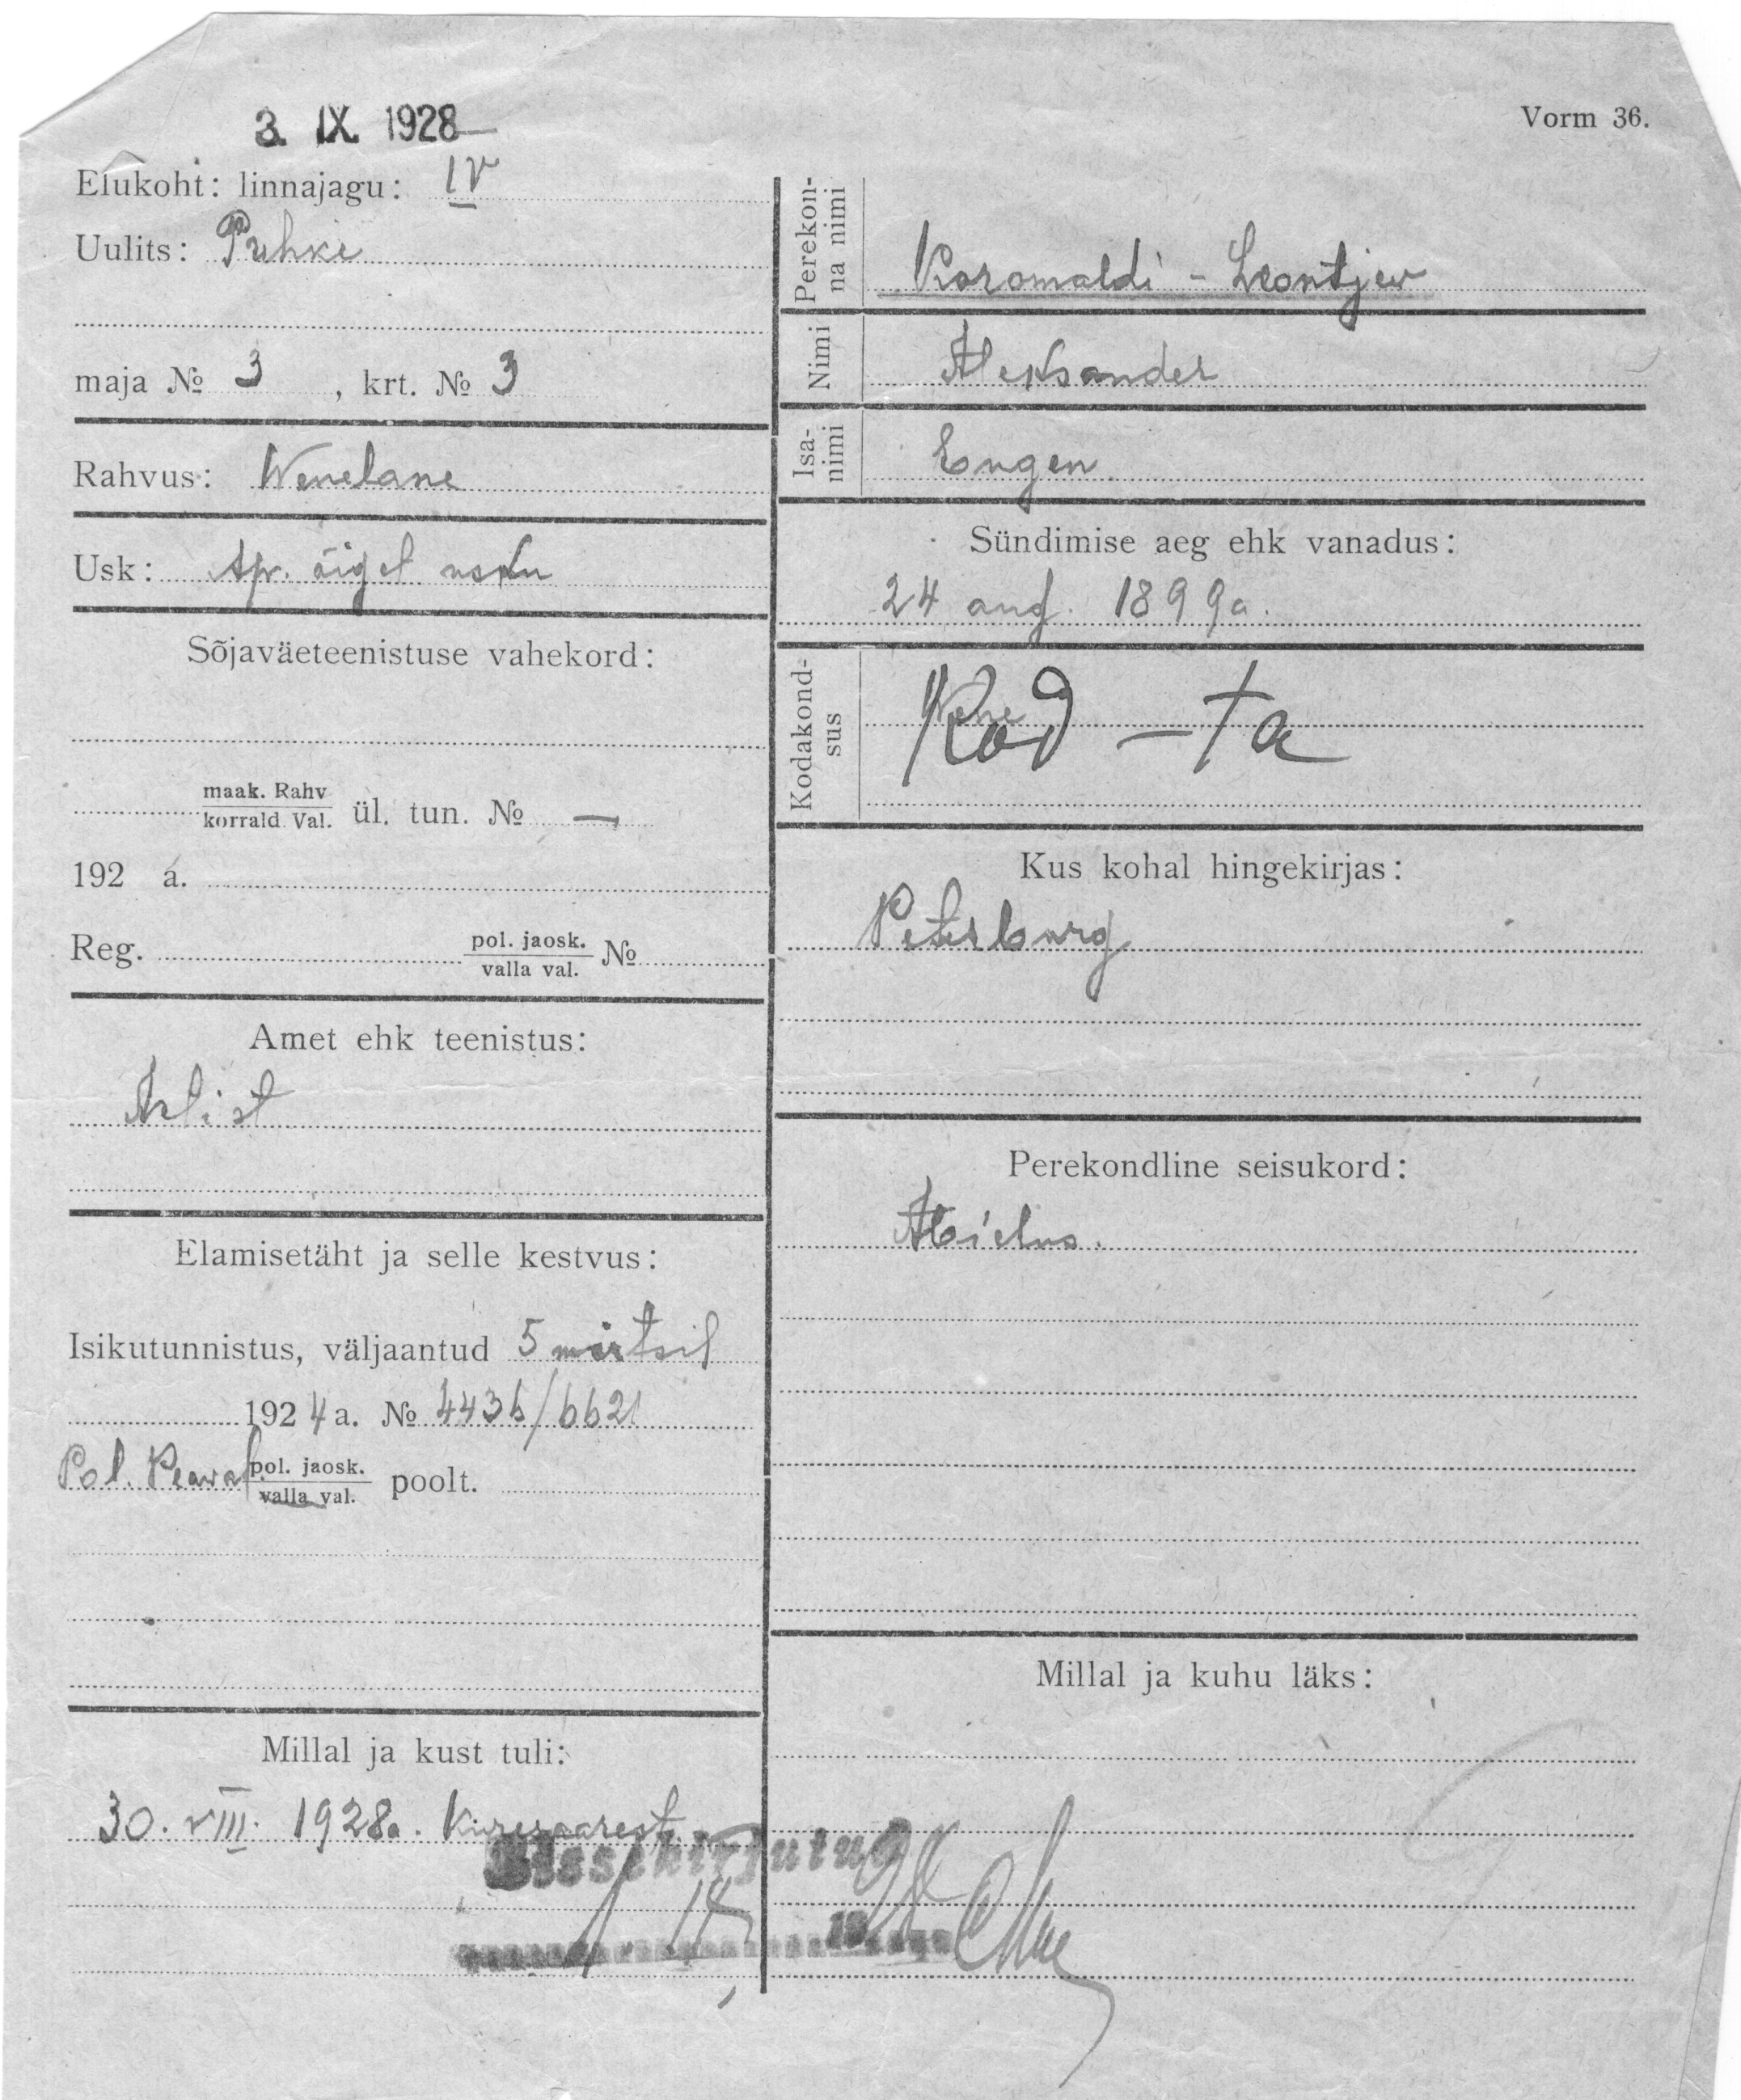 3. IX. 1928
Vorm 36.
Elukoht: linnajagu: IV
Uulits: Puhke
maja № 3, krt. № 3
Rahvus: Wenelane
Usk: Ap. õigel usku
Sõjaväeteenistuse vahekord:
maak. Rahv
korrald. Val. ül. tun. № —
192 a.
Reg. pol. jaosk.
valla val. №
Amet ehk teenistus:
Artist
Elamisetäht ja selle kestvus:
Isikutunnistus, väljaantud 5 märtsil
1924 a. № 4436/6621
Pol. Peaval. pol. jaosk.
valla val. poolt.
Millal ja kust tuli:
30. VIII. 1928a. Kuresaarest
Perekon-
na nimi
Koromaldi - Leontjew
Nimi
Aleksander
Isa-
nimi
Eugen
Sündimise aeg ehk vanadus:
24 aug. 1899a.
Kodakond-
sus
Wene
Kod - ta
Kus kohal hingekirjas:
Petersburg
Perekondline seisukord:
Abielus.
Millal ja kuhu läks:
Sissekirjutud